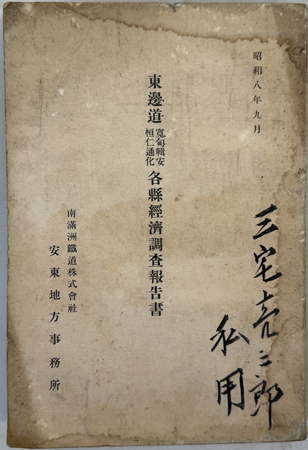 昭和八年九月
東邊道寬甸輯安桓仁通化各縣經濟調查報告書
南滿洲鐵道株式會社
安東地方事務所
三宅亮三郎
私用